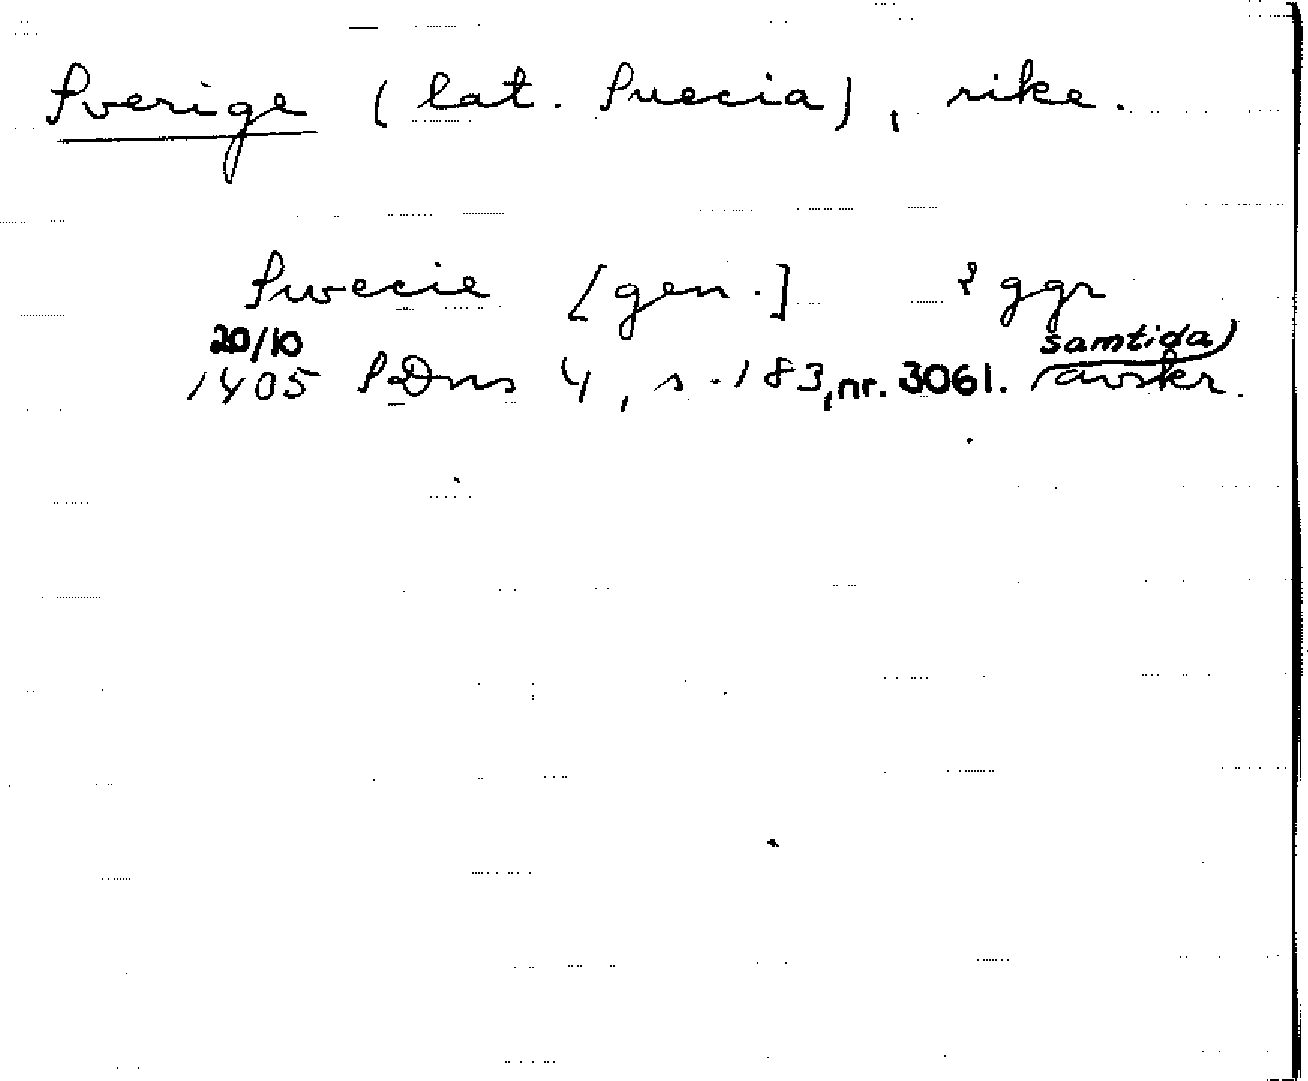 Sverige (lat. Suecia), rike.
Swecie [gen.] 2 ggr
20/10 samtida
1405 SDns 4, s. 183, nr. 3061. avskr.